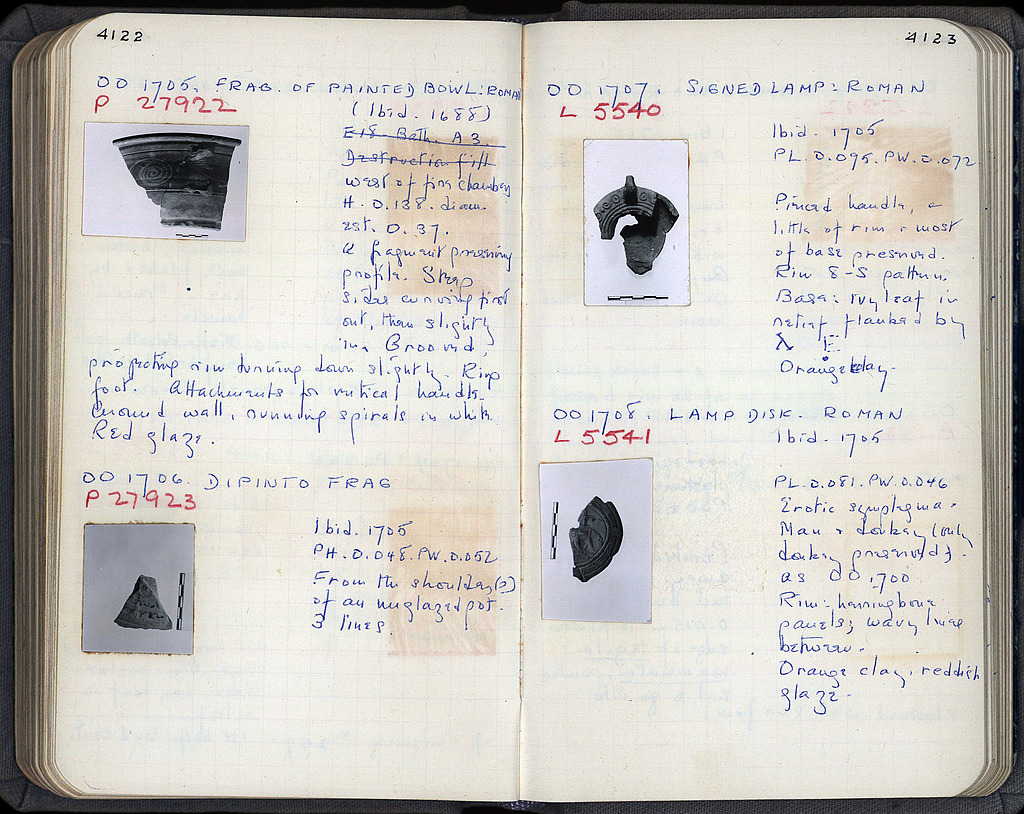 4122
OO 1705. FRAG. OF PAINTED BOWL: ROMAN
P 27922
(Ibid. 1688)
E18. Bath. A 3.
Destruction fill
west of fire chamber
H. 0.138. diam.
est. 0.37.
A fragment preserving
profile. Steep
sides curving first
out, then slightly
in. Grooved,
projecting rim turning down slightly. Ring
foot. Attachments for vertical handle.
Around wall, running spirals in white.
Red glaze.
OO 1706. DIPINTO FRAG
P 27923
Ibid. 1705
PH. 0.048. PW. 0.052
From the shoulder(?)
of an unglazed pot.
3 lines.
4123
OO 1707. SIGNED LAMP: ROMAN
L 5540
Ibid. 1705
PL. 0.095. PW. 0.072
Pierced handle, a
little of rim & most
of base preserved.
Rim 8-S pattern.
Base: ivy leaf in
relief flanked by
λ E
Orange clay.
OO 1708. LAMP DISK. ROMAN
L 5541
Ibid. 1705
PL. 0.081. PW. 0.046
Erotic symplegma.
Man & donkey (only
donkey preserved).
as OO 1700
Rim: herringbone
panels; wavy lines
between.
Orange clay, reddish
glaze.